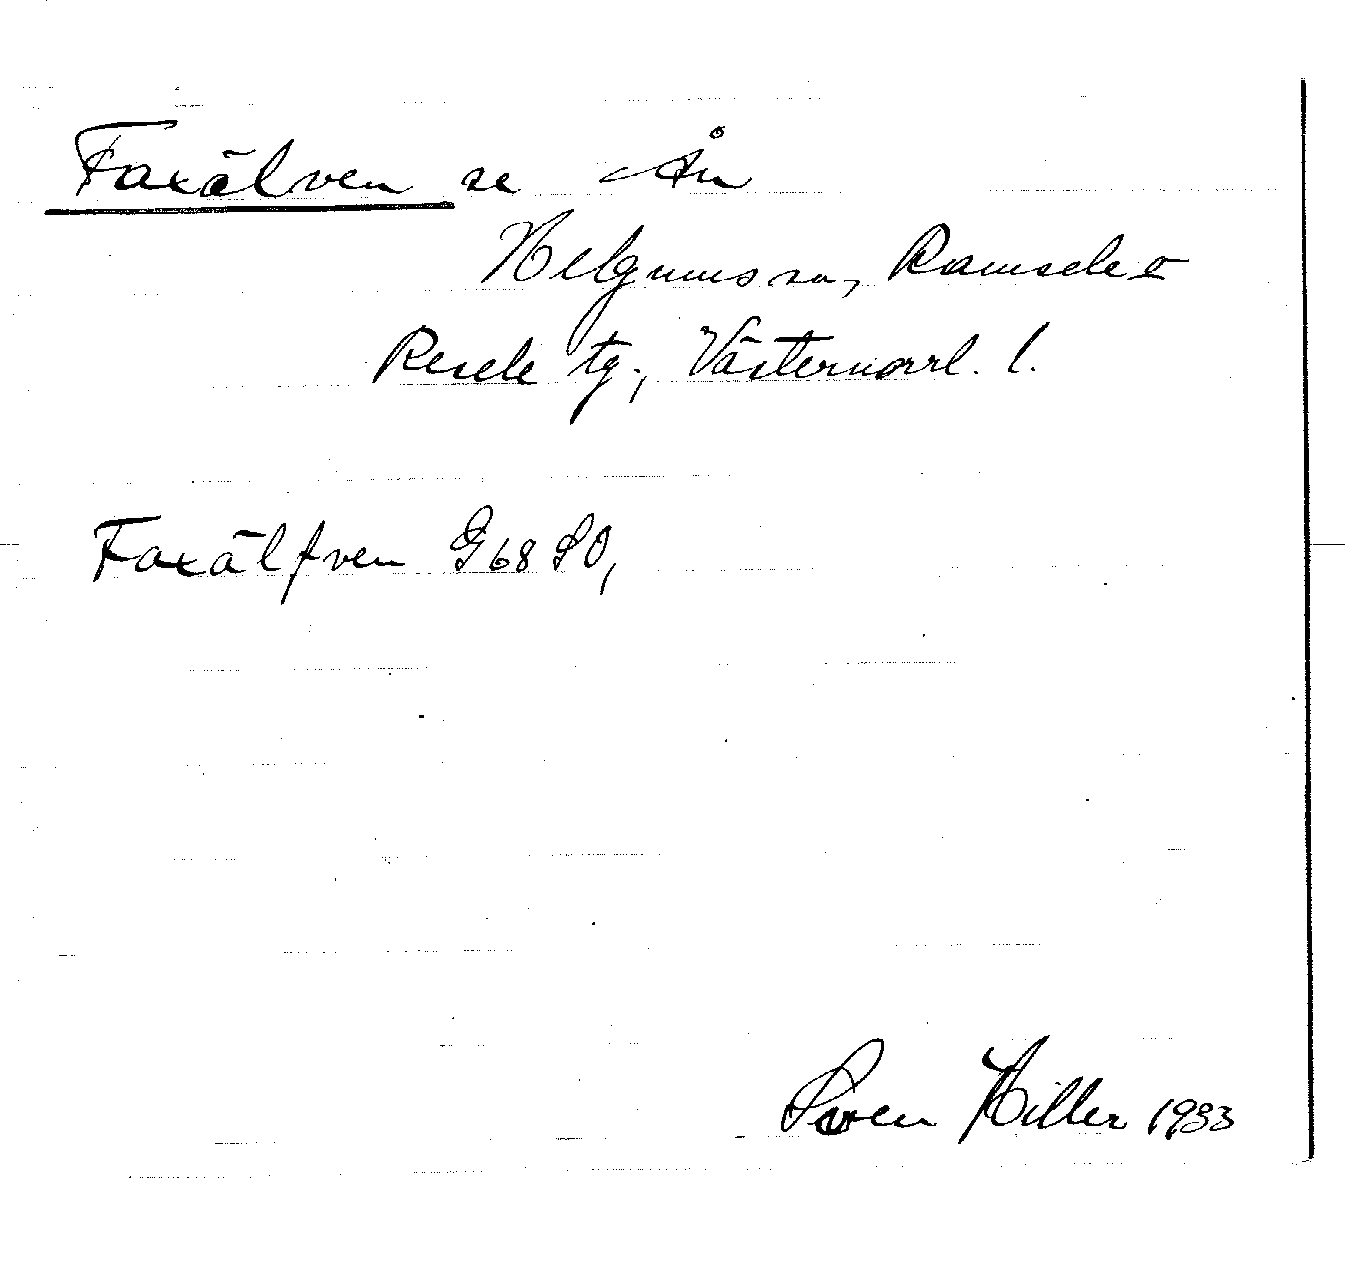 Faxälven se Ån
Helgumss sn, Ramsele o
Resele tg., Västernorrl. l.
Faxälfven G68SO,
Sven Hiller 1933